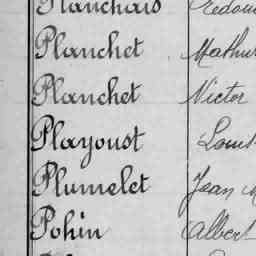 Planchais
Planchet Mathur
Planchet Victor
Playoust Louis
Plumelet Jean M
Pohin Albert